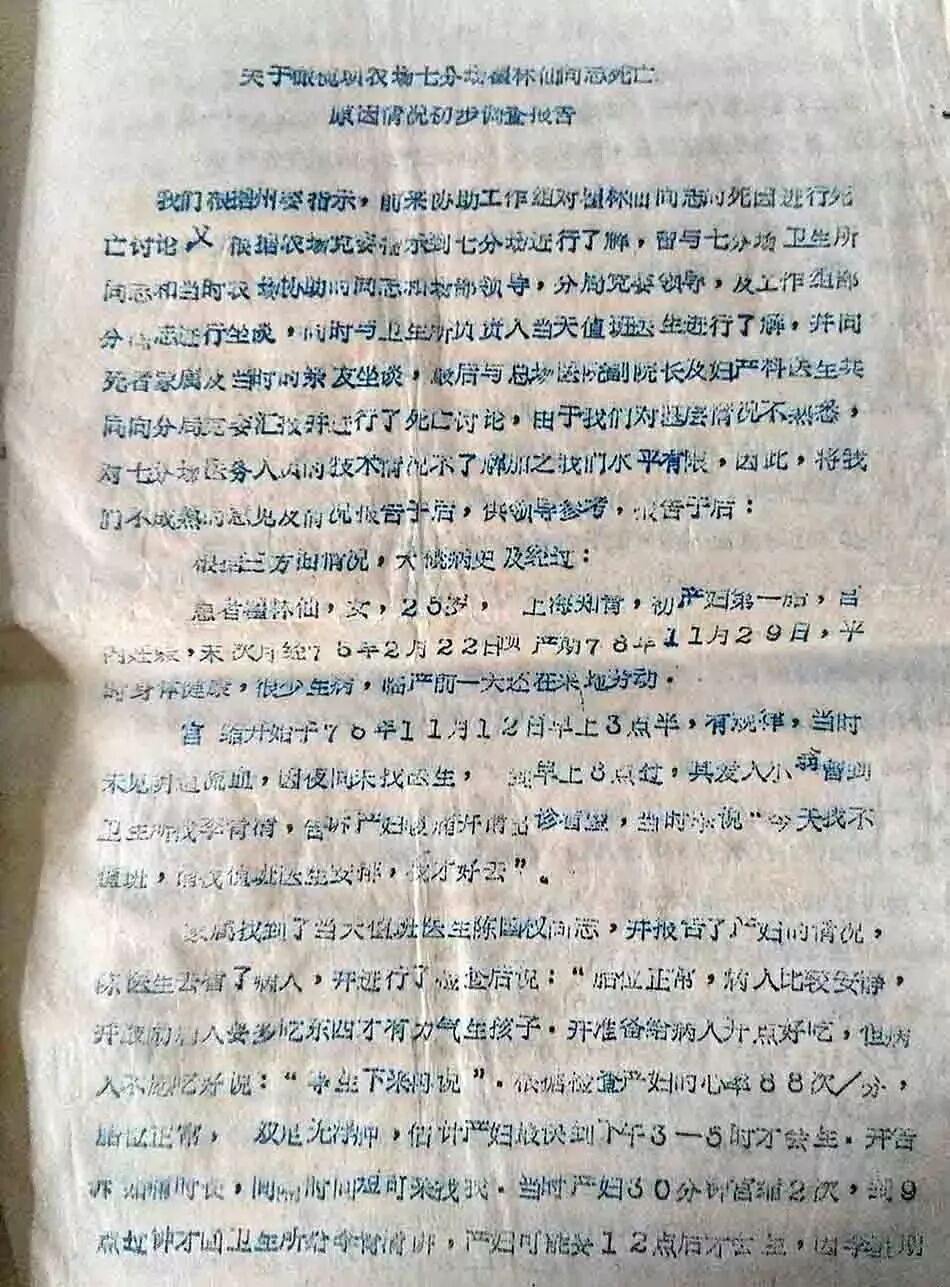 关于眼镜坝农场七分场瞿林仙同志死亡
原因情况初步调查报告
我们根据州委指示,前来协助工作组对瞿林仙同志的死因进行死
亡讨论 根据农场党委指示到七分场进行了解,曾与七分场卫生所
同志和当时农场协助的同志和场部领导,分局党委领导,及工作组部
分同志进行坐谈,同时与卫生所负责人当天值班医生进行了解,并同
死者家属及当时的亲友坐谈,最后与总场医院副院长及妇产科医生共
同向分局党委汇报并进行了死亡讨论,由于我们对基层情况不熟悉,
对七分场医务人员的技术情况不了解加之我们水平有限,因此,将我
们不成熟的意见及情况报告于后,供领导参考,报告于后:
根据三方面情况,大概病史及经过:
患者瞿林仙,女,25岁, 上海知青,初产妇第一胎,
内妊娠,末次月经 年2月22日 产期78年11月29日,平
时身体健康,很少生病,临产前一天还在采地劳动.
宫缩开始于78年11月12日早上3点半,有规律,当时
未见阴道流血,因夜间未找医生, 到早上8点过,其爱人小 曾到
卫生所找李 ,告诉产妇腹痛并请出诊看望,当时 说“今天我不
值班,请找值班医生安排,我才好去”。
家属找到了当天值班医生陈国权同志,并报告了产妇的情况,
陈医生去看了病人,并进行了检查后说:“胎位正常,病人比较安静,
并鼓励病人要多吃东西才有力气生孩子.并准备给病人开点好吃,但病
人不愿吃好说:“等生下来再说”.根据检查产妇的心率88次/分,
胎位正常, 双足无浮肿,估计产妇最快到下午3—5时才会生.并告
诉 时长,间隔时间短可来找我.当时产妇30分钟宫缩2次,到9
点过钟才回卫生所给李 讲,产妇可能要12点后才会生,因李